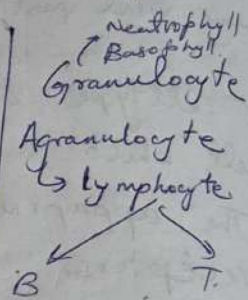 Neutrophyll
Basophyll
Granulocyte
Agranulocyte
↳ lymphocyte
B T.